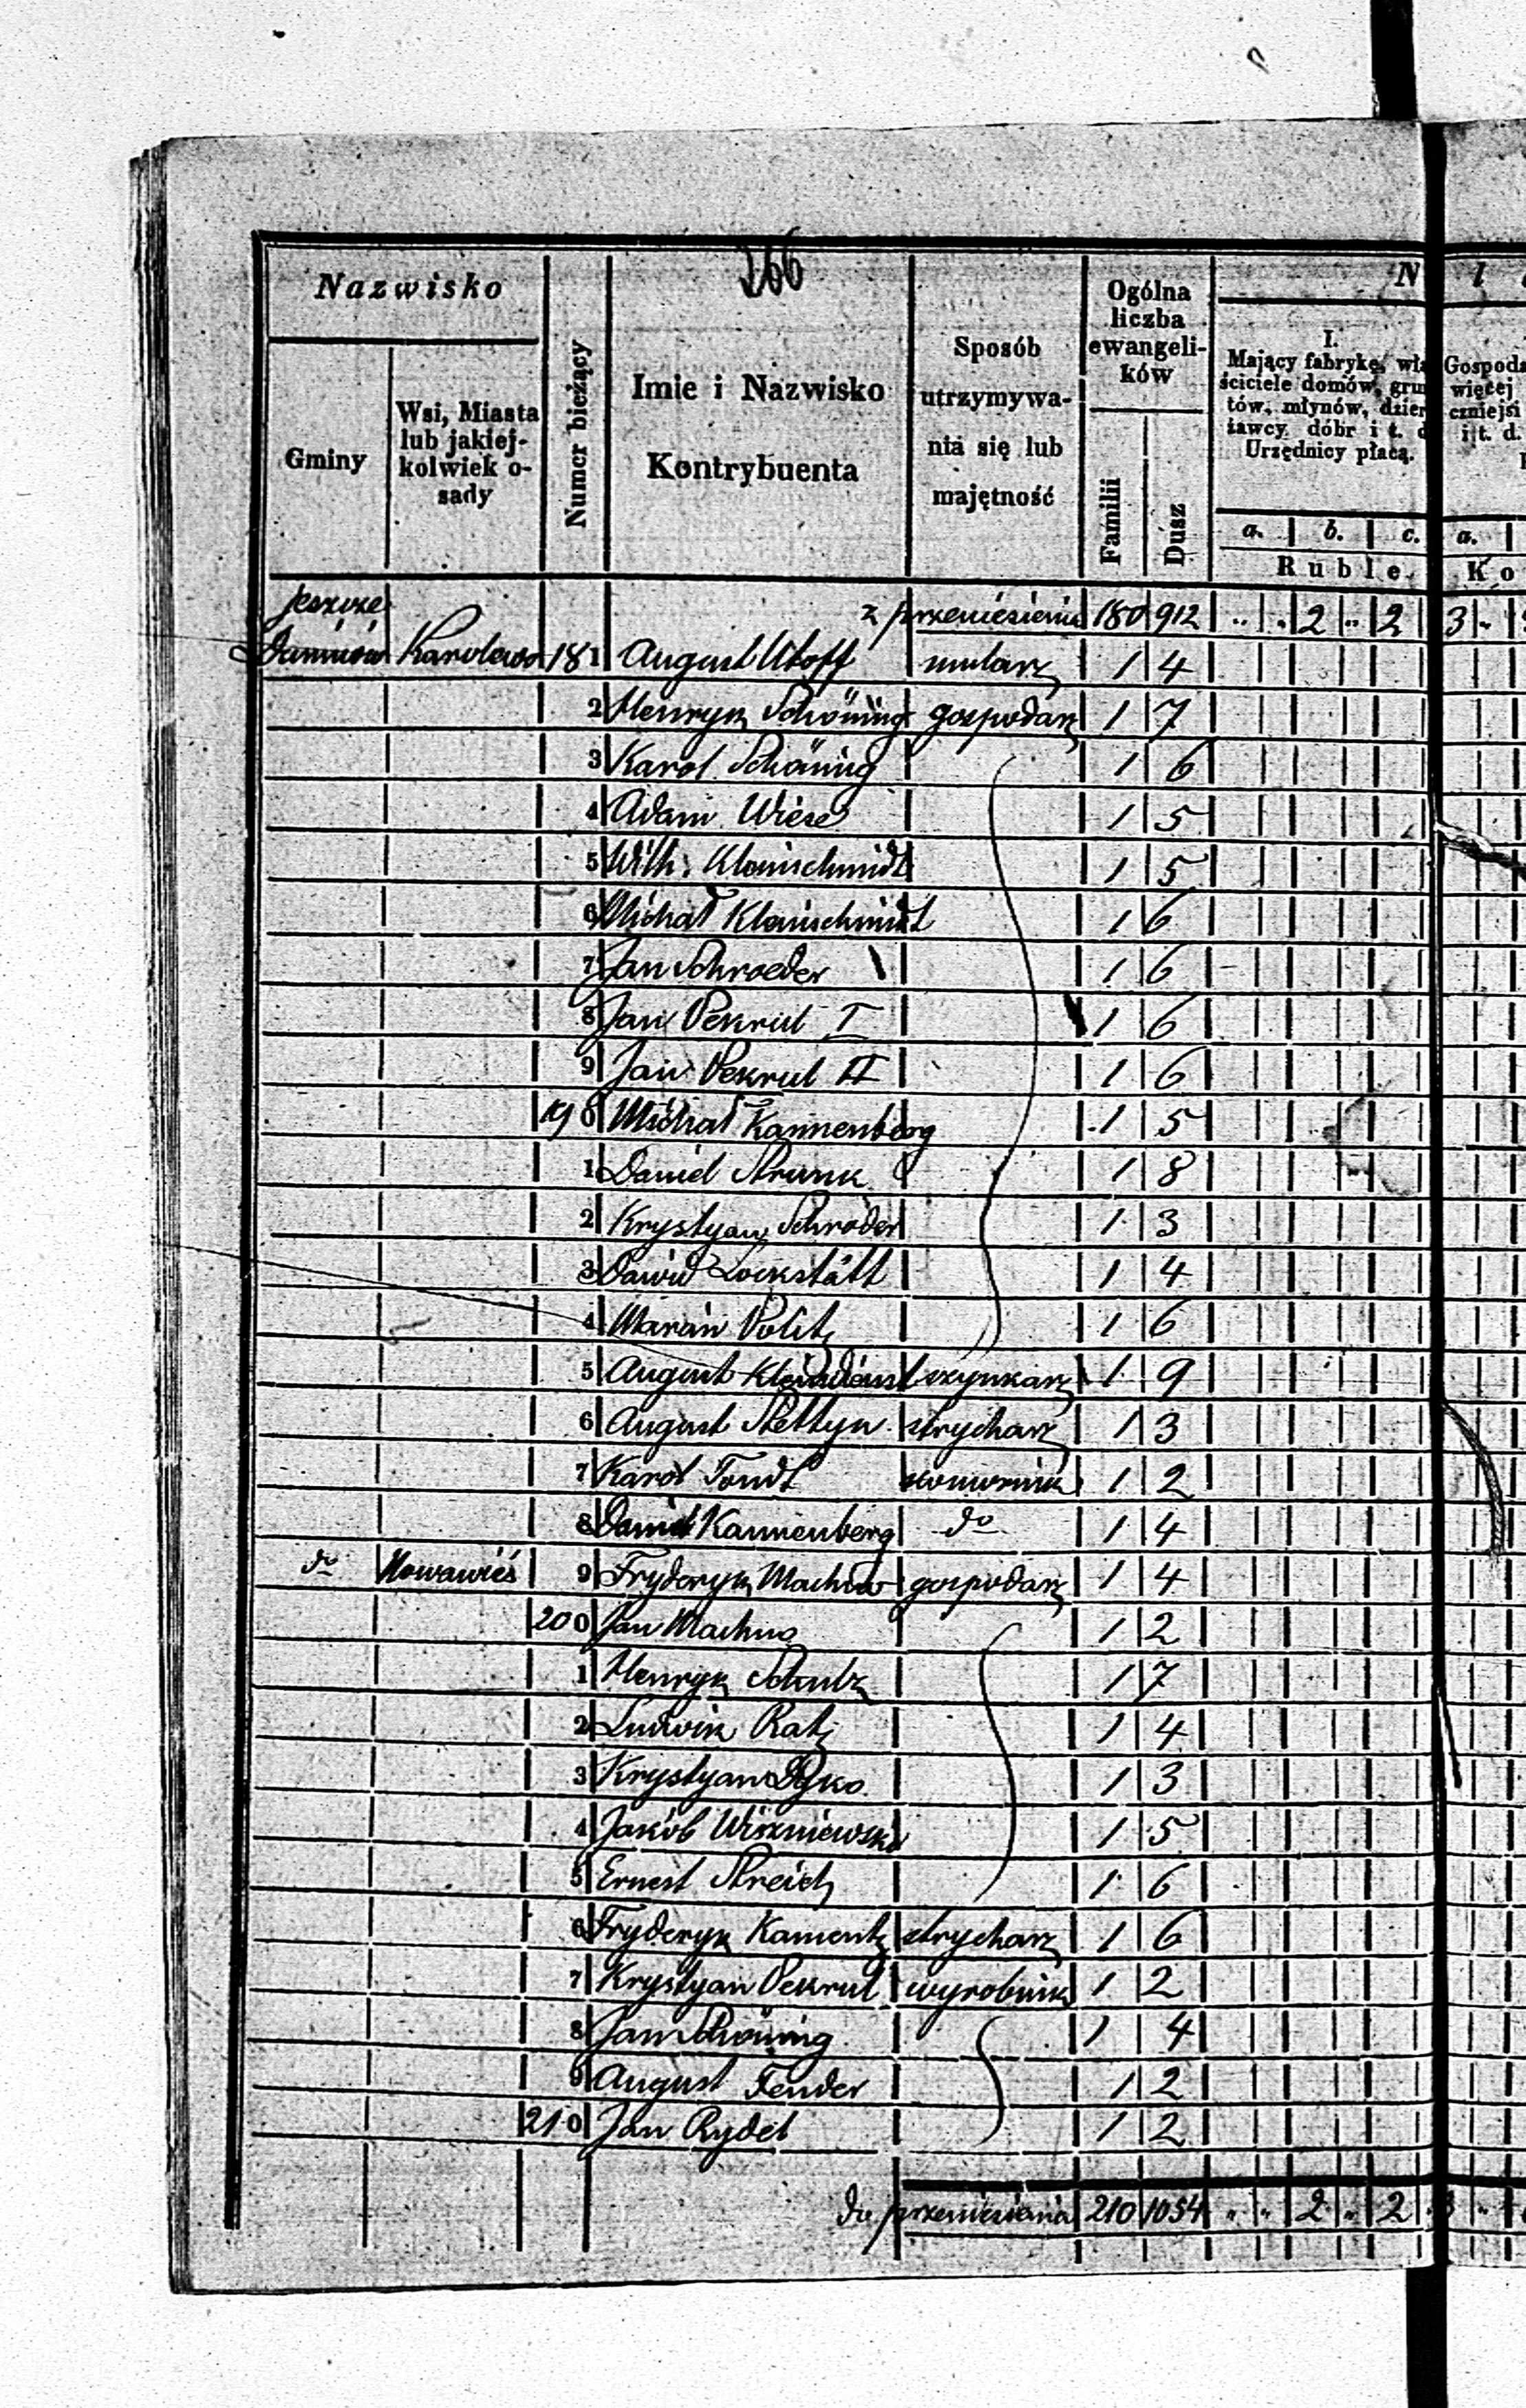 266
Nazwisko
Gminy
Wsi, Miasta lub jakiej-kolwiek o-sady
Numer bieżący
Imie i Nazwisko Kontrybuenta
Sposób utrzymywa-nia się lub majętność
Ogólna liczba ewangeli-ków
Familii
Dusz
N
I.
Mający fabrykę, wła
ściciele domów, grun
tów, młynów, dzier
żawcy dóbr i t. d
Urzędnicy płacą.
Gospoda
więcej
czniejsi
i t. d.
a. b. c. a.
Ruble. Ko
jeszcze z przeniesienia 180 912 .. „ 2 „ 2 3 „
Karolewo 181 August Utoff mularz 1 4
2 Henryk Schöning gospodarz 1 7
3 Karol Schöning 1 6
4 Adam Wiese 1 5
5 Wilh. Kleinschmidt 1 5
6 Michał Kleinschmidt 1 6
7 Jan Schroeder 1 6
8 Jan Pekrul I 1 6
9 Jan Pekrul II 1 6
190 Michał Kannenberg 1 5
1 Daniel Strunk 1 8
2 Krystyan Schröder 1 3
3 Dawid Lockstätt 1 4
4 Politz 1 6
5 August Kleindienst szynkarz 1 9
6 August Stettyn strycharz 1 3
7 Karol Tondt komornik 1 2
8 Daniel Kannenberg do 1 4
do Nowawieś 9 Fryderyk Machno gospodarz 1 4
200 Jan Machno 1 2
1 Henryk Schulz 1 7
2 Ludwik Ratz 1 4
3 Krystyan Dyko 1 3
4 Jakób Wiszniewski 1 5
5 Ernest Streich 1 6
6 Fryderyk Kamentz strycharz 1 6
7 Krystyan Pekrul wyrobnik 1 2
8 Jan Schöning 1 4
9 August Fender 1 2
210 Jan Rydel 1 2
do przeniesienia 210 1054 „ „ 2 „ 2 3 „